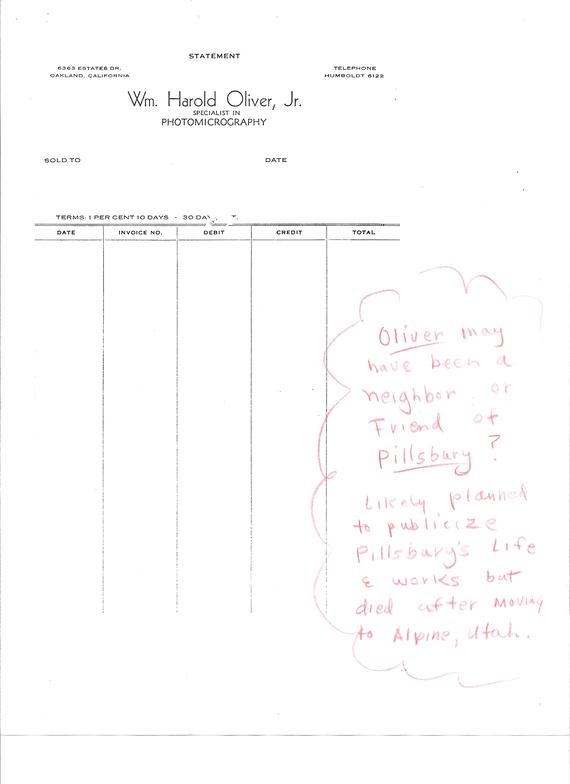 STATEMENT
6363 ESTATES DR.
OAKLAND, CALIFORNIA
TELEPHONE
HUMBOLDT 6122
Wm. Harold Oliver, Jr.
SPECIALIST IN
PHOTOMICROGRAPHY
SOLD TO
DATE
TERMS: 1 PER CENT 10 DAYS - 30 DAY
DATE INVOICE NO. DEBIT CREDIT TOTAL
Oliver may
have been a
neighbor or
Friend of
Pillsbury ?
Likely planned
to publicize
Pillsbury's Life
& works but
died after moving
to Alpine, Utah.